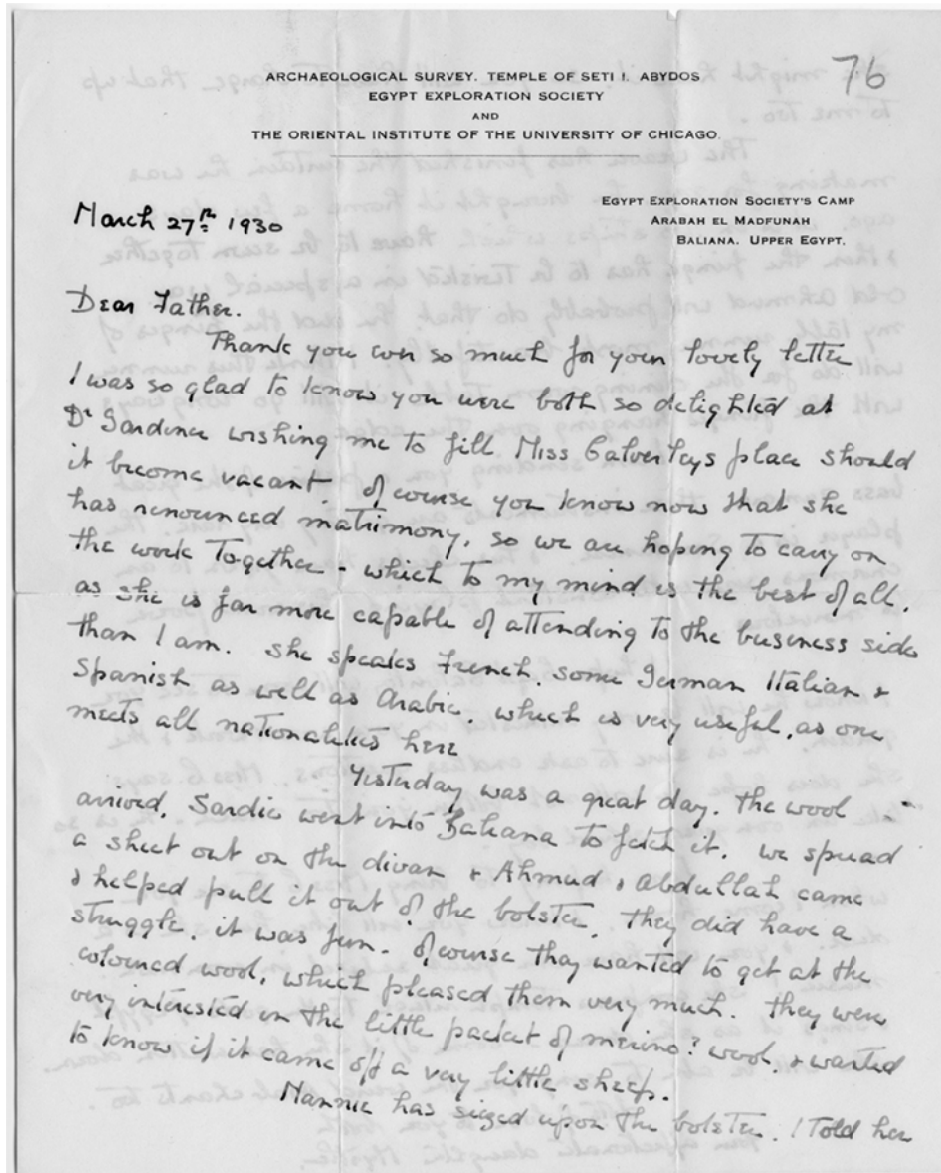 76
ARCHAEOLOGICAL SURVEY. TEMPLE OF SETI I. ABYDOS
EGYPT EXPLORATION SOCIETY
AND
THE ORIENTAL INSTITUTE OF THE UNIVERSITY OF CHICAGO.
EGYPT EXPLORATION SOCIETY'S CAMP
ARABAH EL MADFUNAH
BALIANA. UPPER EGYPT.
March 27th 1930
Dear Father.
Thank you ever so much for your lovely letter
I was so glad to know you were both so delighted at
Dr Gardiner wishing me to fill Miss Calverleys place should
it become vacant. Of course you know now that she
has renounced matrimony, so we are hoping to carry on
the work together - which to my mind is the best of all,
as she is far more capable of attending to the business side
than I am. She speaks French, some German Italian &
Spanish as well as Arabic, which is very useful, as one
meets all nationalities here
Yesterday was a great day. The wool
arrived. Sardic went into Baliana to fetch it. We spread
a sheet out on the divan & Ahmud & Abdullah came
& helped pull it out of the bolster, they did have a
struggle, it was fun. Of course they wanted to get at the
coloured wool, which pleased them very much. They were
very interested in the little packet of merino? wool, & wanted
to know if it came off a very little sheep.
Nannie has siezed upon the bolster. I told her